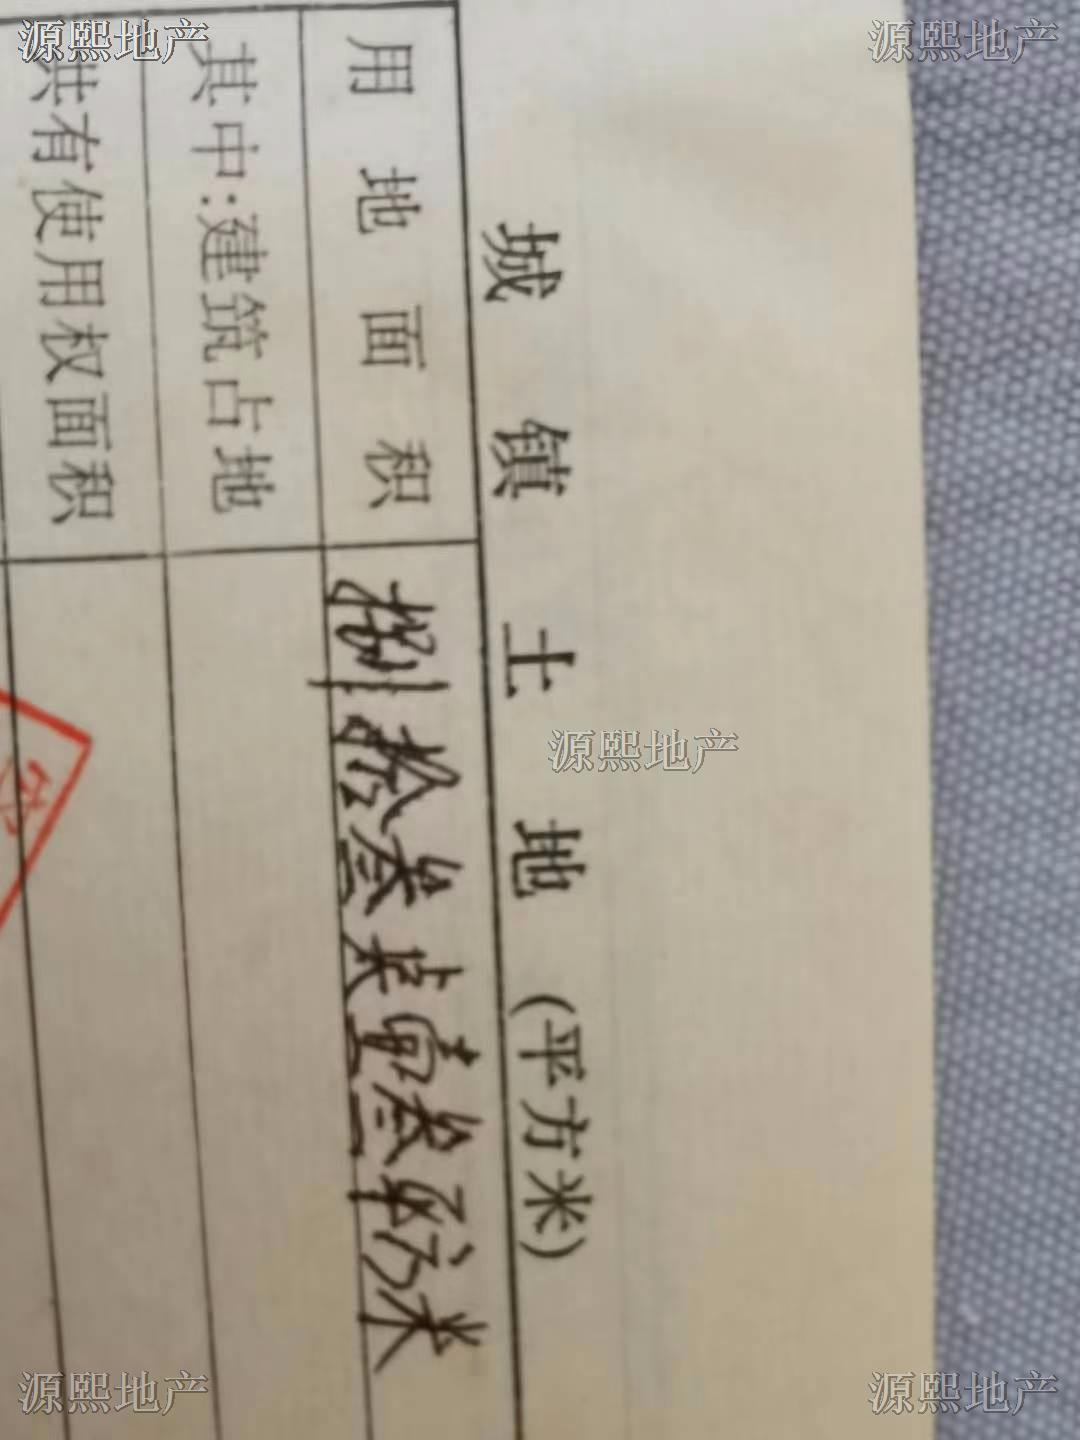 城镇土地(平方米)
用地面积 捌拾叁点壹叁平方米
其中:建筑占地
共有使用权面积
源熙地产
源熙地产
源熙地产
源熙地产
源熙地产